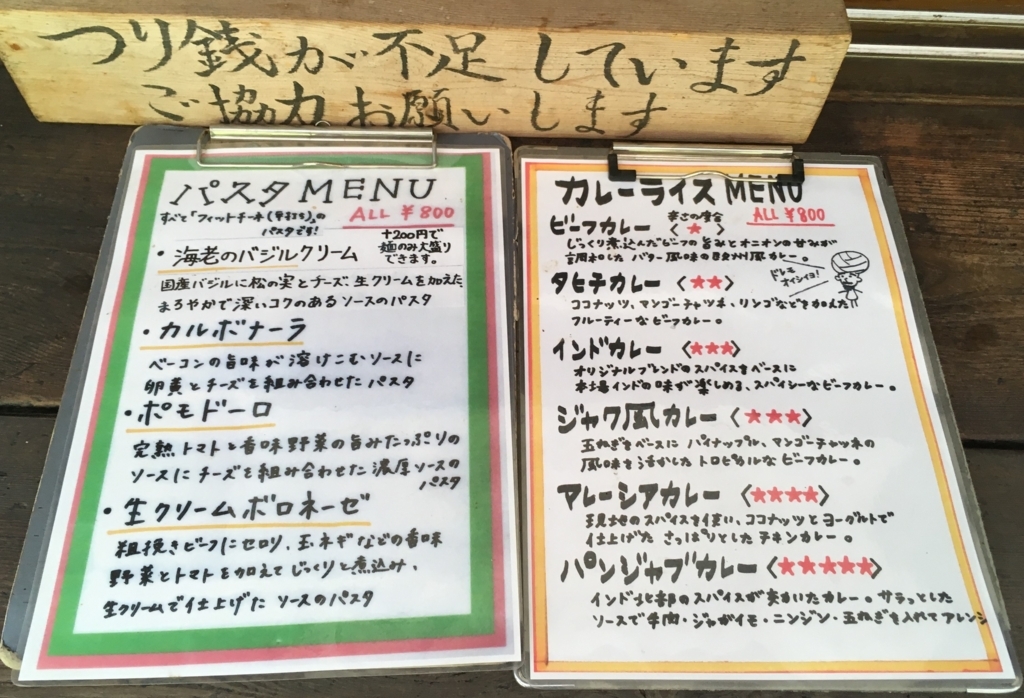 つり銭が不足しています
ご協力お願いします
パスタ MENU
すべて「フィットチーネ(平打ち)」の
パスタです!
ALL ¥800
+200円で
麺のみ大盛り
できます。
・海老のバジルクリーム
国産バジルに松の実とチーズ、生クリームを加えた
まろやかで深いコクのあるソースのパスタ
・カルボナーラ
ベーコンの旨味が溶けこむソースに
卵黄とチーズを組み合わせたパスタ
・ポモドーロ
完熟トマトと香味野菜の旨みたっぷりの
ソースにチーズを組み合わせた濃厚ソースの
パスタ
・生クリームボロネーゼ
粗挽きビーフにセロリ、玉ネギなどの香味
野菜とトマトを加えてじっくりと煮込み、
生クリームで仕上げたソースのパスタ
カレーライス MENU
ALL ¥800
ビーフカレー 辛さの度合〈★〉
じっくり煮込んだビーフの旨みとオニオンの甘みが
調和したバター風味の欧州風カレー。
ドレモ
オイシイヨ!
タヒチカレー〈★★〉
ココナッツ、マンゴーチャツネ、リンゴなどを加えた
フルーティーなビーフカレー。
インドカレー〈★★★〉
オリジナルブレンドのスパイスをベースに
本場インドの味が楽しめる、スパイシーなビーフカレー。
ジャワ風カレー〈★★★〉
玉ねぎをベースにパイナップル、マンゴーチャツネの
風味を活かしたトロピカルなビーフカレー。
マレーシアカレー〈★★★★〉
現地のスパイスを使い、ココナッツとヨーグルトで
仕上げたさっぱりとしたチキンカレー。
パンジャブカレー〈★★★★★〉
インド北部のスパイスが効いたカレー。サラっとした
ソースで牛肉・ジャガイモ・ニンジン・玉ねぎを入れてアレンジ